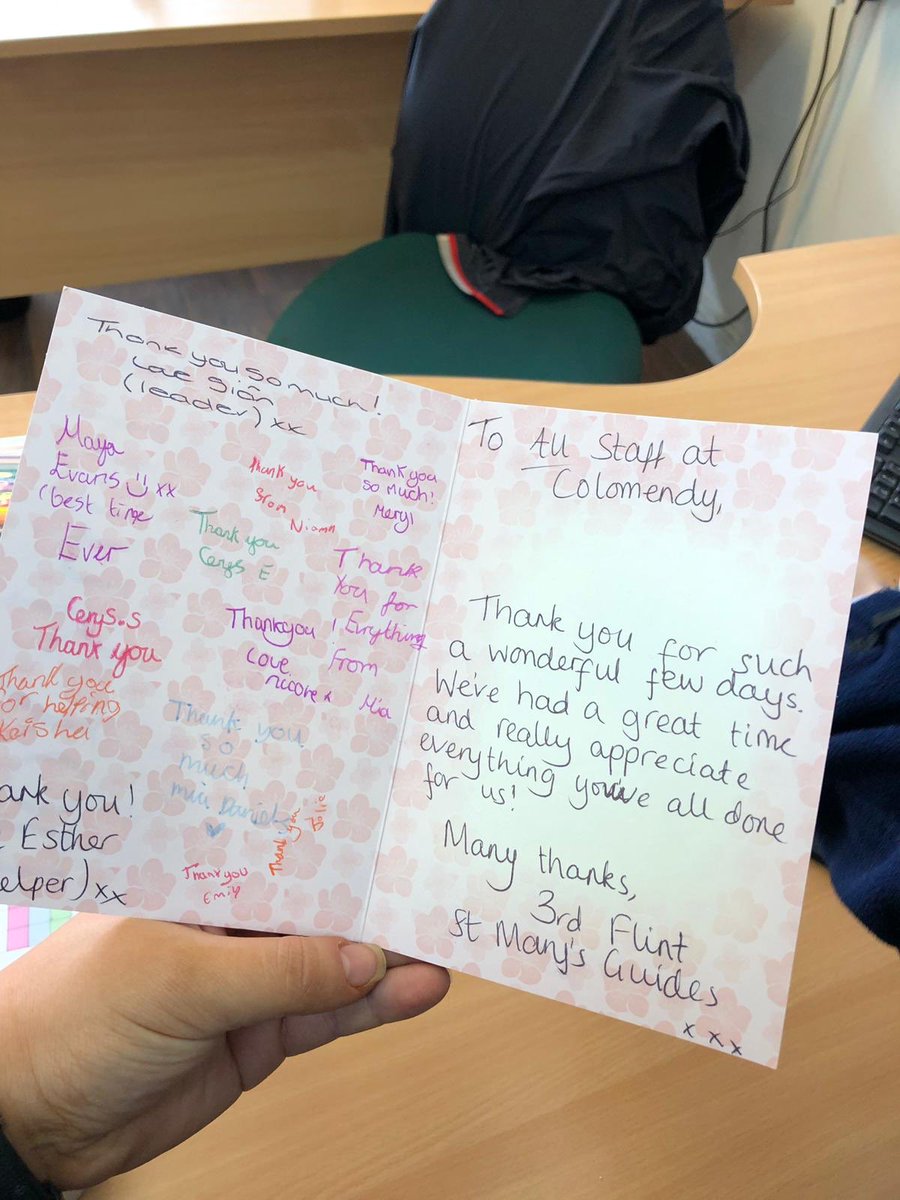 Thank you so much!
Love Siân
(leader) xx
Maya
Evans xx
(best time
Ever
Thank you
from Niamh
Thank you
so much!
Meryl
Thank you
Cerys E
Thank
You for
Evrything
From
Mia
Cerys.S
Thank you
Thankyou!
Love
nicole x
Thank you
or helping
Thank you
so
much
mia Daniel
ank you!
Esther
elper) xx
Thank you
Jolie
Thank you
Emily
To All Staff at
Colomendy,
Thank you for such
a wonderful few days.
We've had a great time
and really appreciate
everything you've all done
for us!
Many thanks,
3rd Flint
St Mary's Guides
x x x